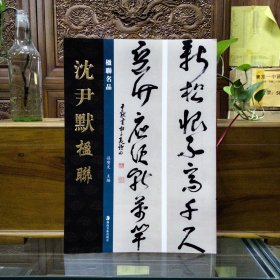 沈尹默楹聯
楹聯名品
孫寶文 主編
新松恨不高千尺
惡竹應須斬萬竿